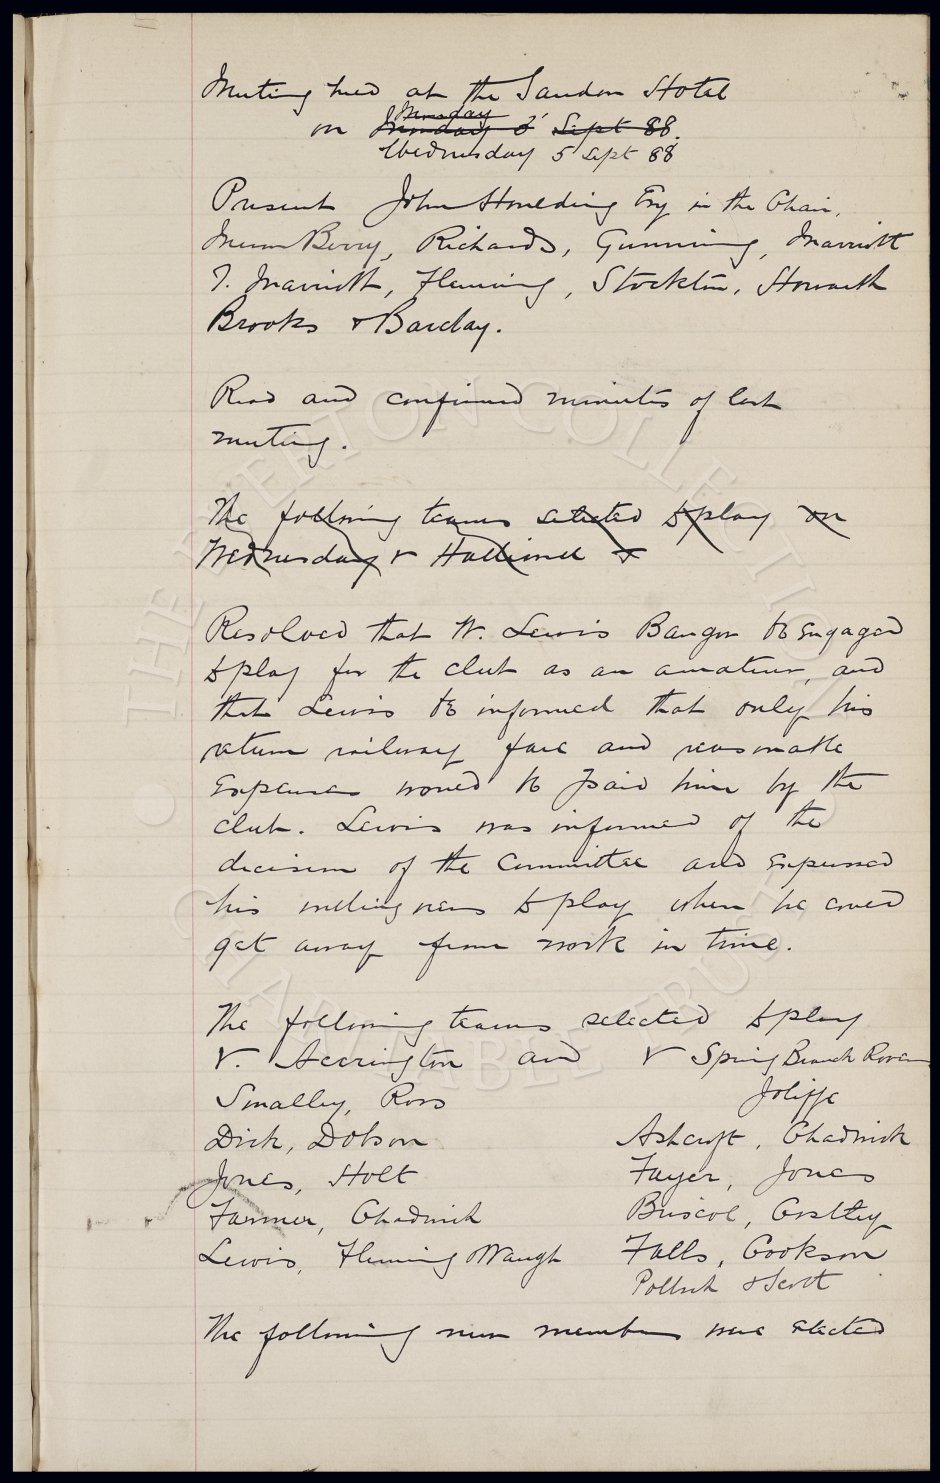 Meeting held at the Sandon Hotel
on Monday 3 Sept 88.
Monday
Wednesday 5 Sept 88
Present John Houlding Esq in the Chair,
Messrs Berry, Richards, Gunning, Marriott
T. Marriott, Fleming, Stockton, Howarth
Brooks & Barclay.
Read and confirmed minutes of last
meeting.
The following teams selected to play on
Wednesday v Halliwell &
Resolved that W. Lewis Bangor be engaged
to play for the club as an amateur, and
that Lewis be informed that only his
return railway fare and reasonable
expenses would be paid him by the
club. Lewis was informed of the
decision of the Committee and expressed
his willingness to play when he could
get away from work in time.
The following teams selected to play
v. Accrington and v Spring Branch Rovers
Smalley, Ross Joliffe
Dick, Dobson Ashcroft, Chadwick
Jones, Holt Fayer, Jones
Farmer, Chadwick Briscoe, Costley
Lewis, Fleming Waugh Falls, Cookson
Pollock & Scott
The following new members were elected
© THE EVERTON COLLECTION CHARITABLE TRUST